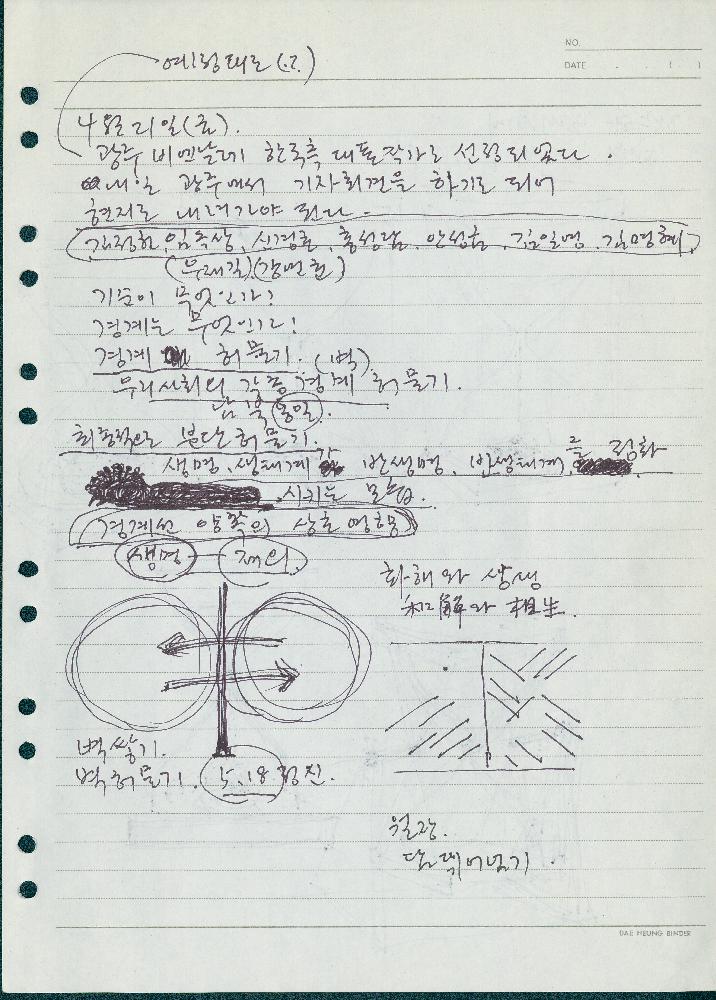 NO.
DATE . . ( )
예정대로 (.?.)
4월 21일(금).
광주 비엔날레 한국측 대표작가로 선정되었다.
내일 광주에서 기자회견을 하기로 되어
현지로 내려가야 된다.
임옥상, 신경호, 홍성담, 안성금, 김일영, 김명혜,
(우제길)
기준이 무엇인가?
경계는 무엇인가!
경계 허물기. (벽)
우리사회의 각종 경계 허물기.
남북 통일.
최종적으로 분단허물기.
생명, 생태계가 반생명, 반생태계를 정화
시키는 모습.
경계선 양쪽의 상호영향
생명 — 제의.
화해와 상생
和解와 相生.
벽쌓기.
벽허물기. 5.18정신.
월장.
담 뛰어넘기.
DAE HEUNG BINDER